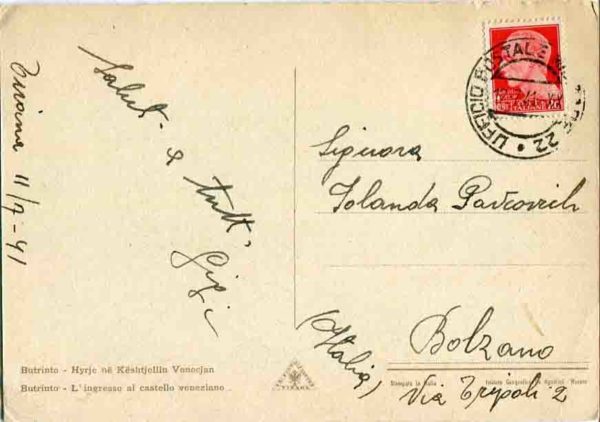 Tirana 11/7-41
Saluti a tutti
Gigi
Signora
Iolanda Pavcovich
Bolzano
(Italia)
Via Tripoli 2
UFFICIO POSTALE
22
Butrinto - Hyrje në Kështjellin Venecjan
Butrinto - L'ingresso al castello veneziano
Stampato in Italia
Istituto Geografico De Agostini - Novara